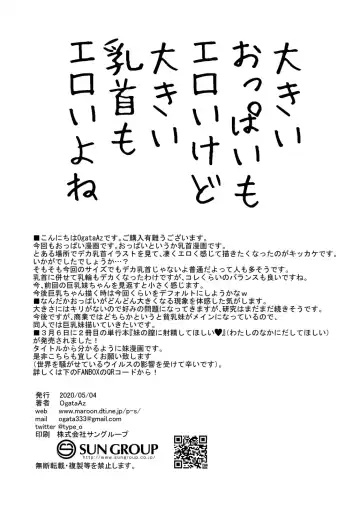 大きい
おっぱいも
エロいけど
大きい
乳首も
エロいよね
■こんにちはOgataAzです。ご購入有難うございます。
今回もおっぱい漫画です。おっぱいというか乳首漫画です。
とある場所でデカ乳首イラストを見て、凄くエロく感じて描きたくなったのがキッカケです。
いかがでしたでしょうか…？
そもそも今回のサイズでもデカ乳首じゃないよ普通だよって人も多そうです。
乳首に併せて乳輪もデカくなったわけですが、コレくらいのバランスも良いですね。
今後、前回の巨乳妹ちゃんを見返すと小さく感じます。
今後巨乳ちゃん描く時は今回くらいをデフォルトにしようかなw
■なんだかおっぱいがどんどん大きくなる現象を体感した気がします。
大きさにはキリがないので好みの問題になってきますが、研究はまだまだ続きそうです。
今後ですが、商業ではどちらかというと貧乳妹がメインになっているので、
同人では巨乳妹描いていきたいです。
■３月６日に２冊目の単行本『妹の膣に射精してほしい♥』(わたしのなかにだしてほしい)
が発売されました！
タイトルから分かるように妹漫画です。
是非こちらも宜しくお願い致します
(世界を騒がせているウイルスの影響を受けて辛いです)。
詳しくは下のFANBOXのQRコードから！
発行　2020/05/04
著者　OgataAz
web　www.maroon.dti.ne.jp/p-s/
mail　ogata333@gmail.com
twitter @type_o
印刷　株式会社サングループ
SUN GROUP
http://www.sungroup.co.jp/
無断転載・複製等を禁止します。